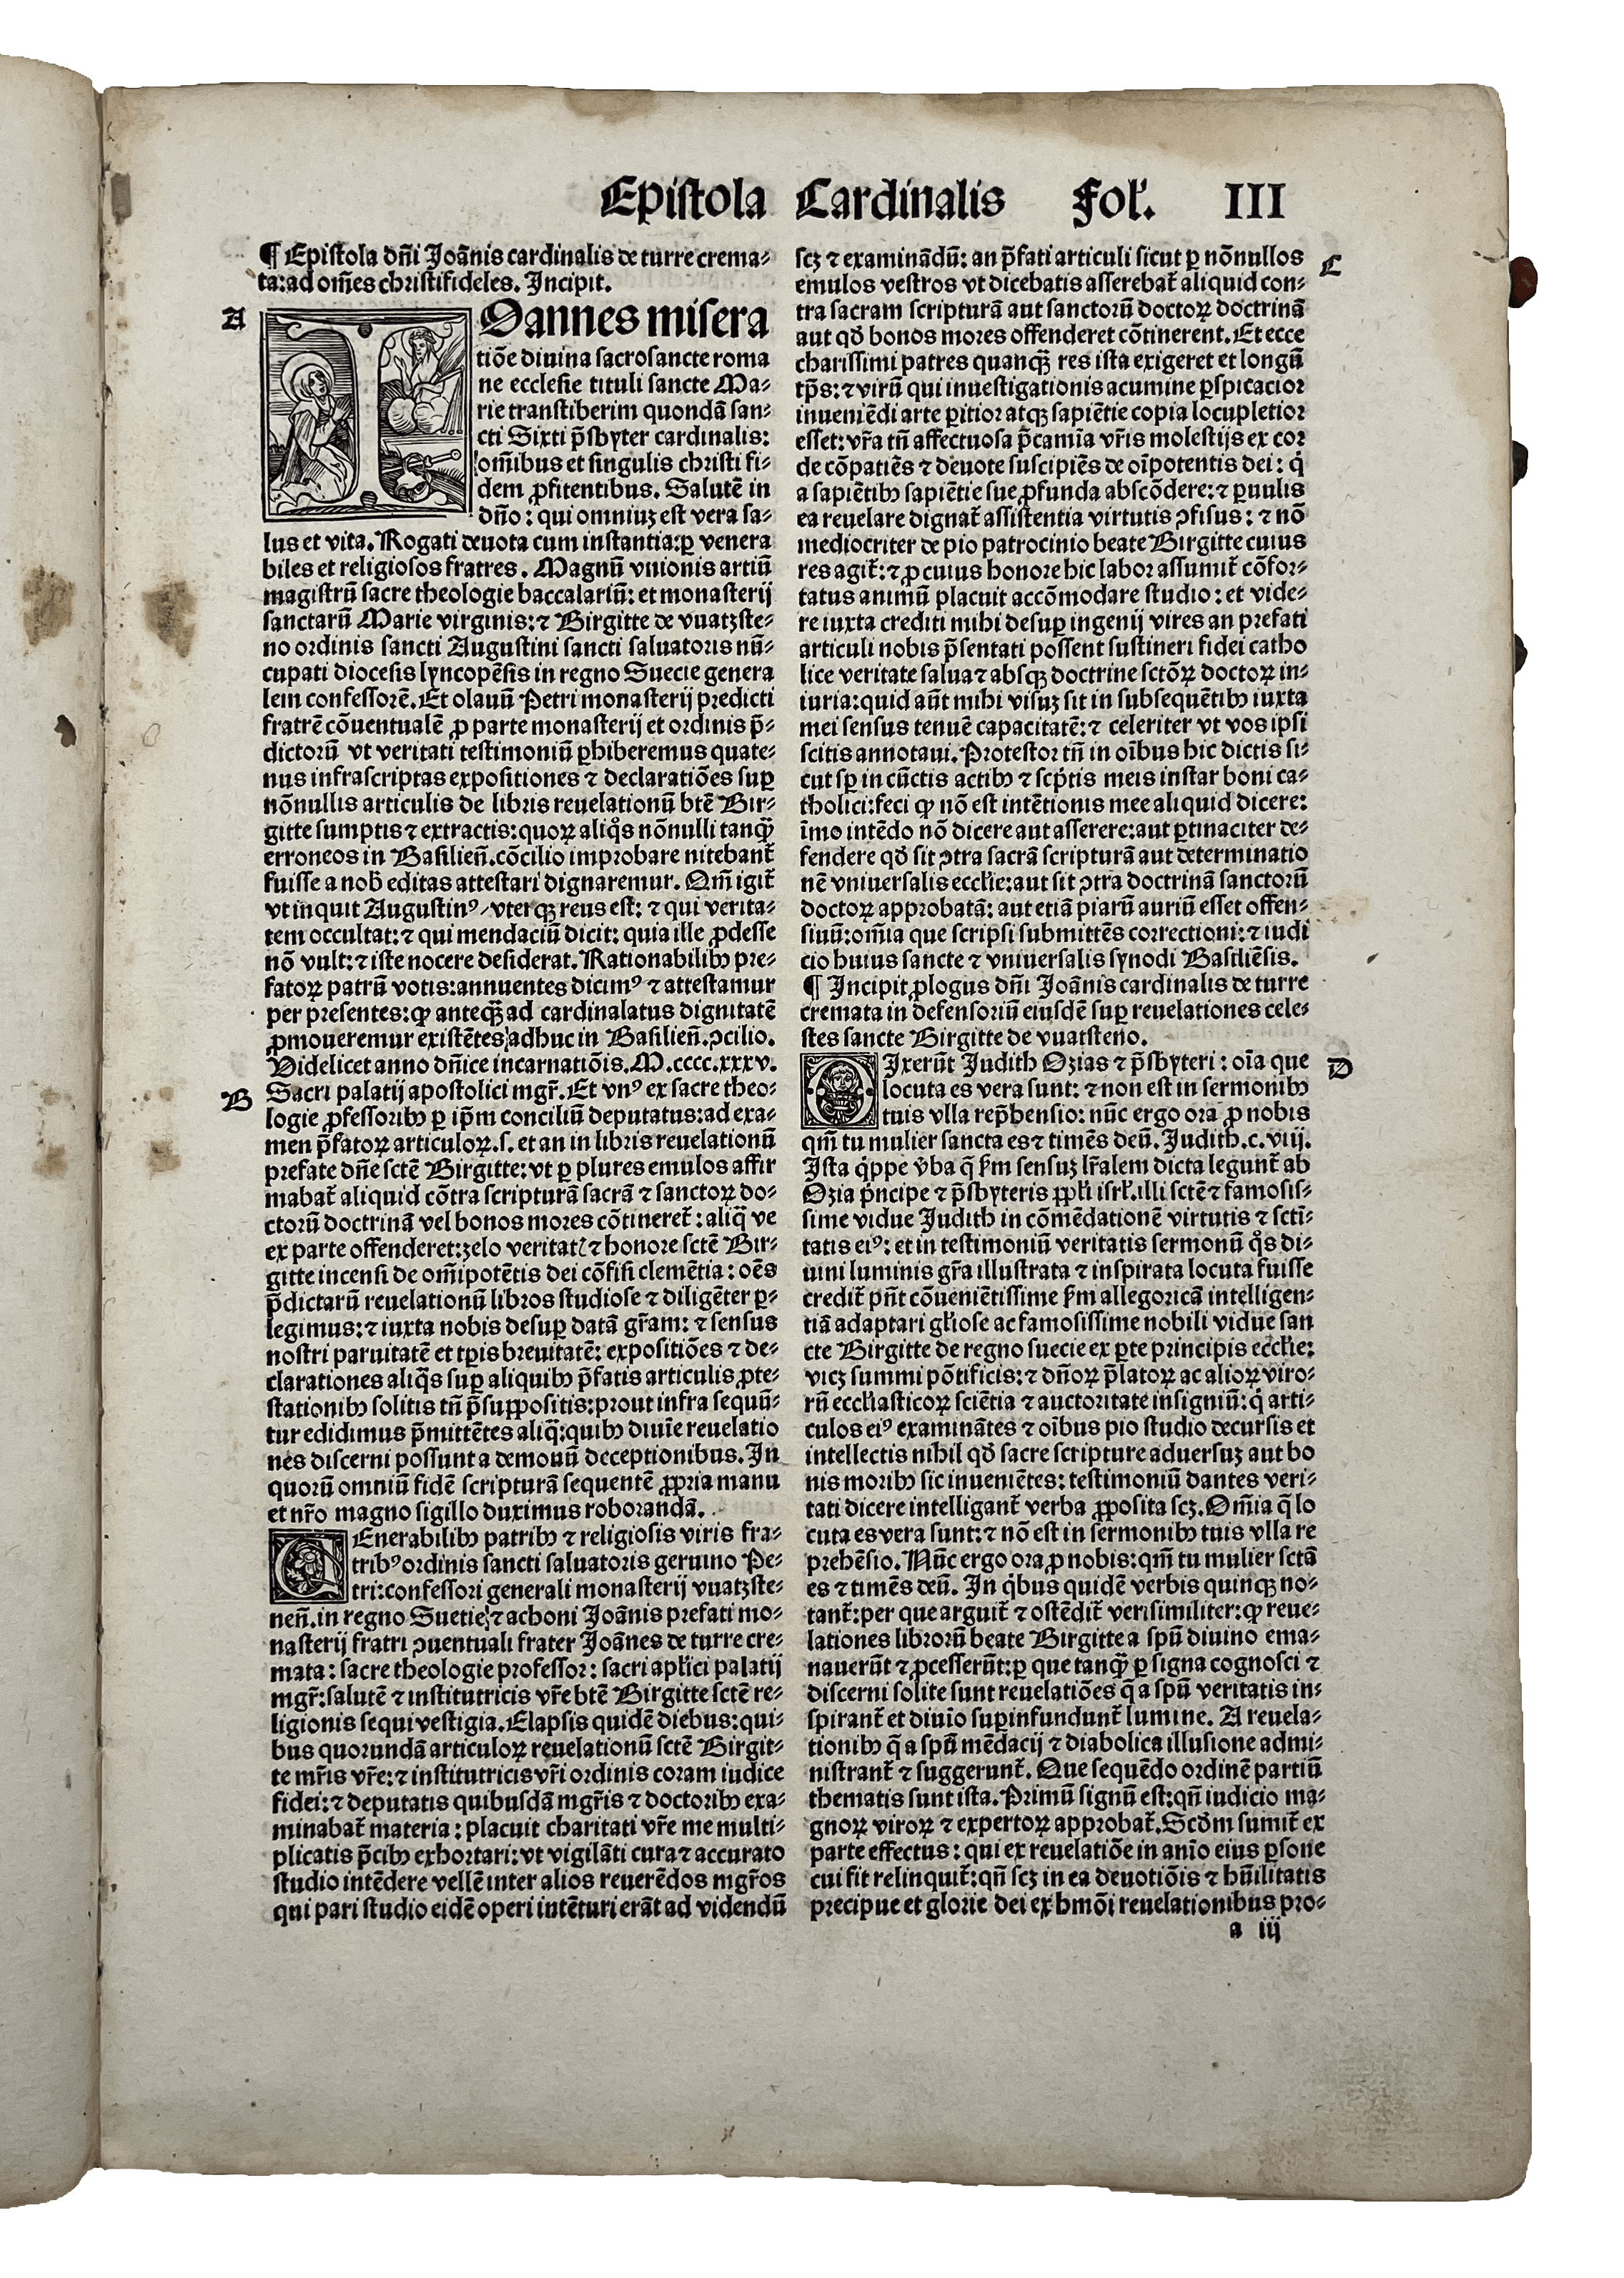 Epistola Cardinalis Fol. III
¶ Epistola dñi Joãnis cardinalis de turre crema-
ta: ad om̃es christifideles. Incipit.
A
IOannes misera
tiõe diuina sacrosancte roma
ne ecclesie tituli sancte Ma-
rie transtiberim quondã san-
cti Sixti p̃sbyter cardinalis:
om̃ibus et singulis christi fi-
dem ꝓfitentibus. Salutẽ in
dño: qui omniuꝫ est vera sa-
lus et vita. Rogati deuota cum instantia: ꝑ venera
biles et religiosos fratres. Magnũ vnionis artiũ
magistrũ sacre theologie baccalariũ: et monasterij
sanctarũ Marie virginis: ⁊ Birgitte de vuatzste-
no ordinis sancti Augustini sancti saluatoris nũ-
cupati diocesis lyncopẽsis in regno Suecie genera
lem confessorẽ. Et olauũ Petri monasterij predicti
fratrẽ cõuentualẽ ꝓ parte monasterij et ordinis p̃-
dictorũ vt veritati testimoniũ ꝑhiberemus quate-
nus infrascriptas expositiones ⁊ declaratiões suꝑ
nõnullis articulis de libris reuelationũ btẽ Bir-
gitte sumptis ⁊ extractis: quoꝝ aliq̊s nõnulli tanq̃
erroneos in Basilieñ. cõcilio improbare nitebant̃
fuisse a nob̃ editas attestari dignaremur. Qm̃ igit̃
vt inquit Augustinꝰ / vterqꝫ reus est: ⁊ qui verita-
tem occultat: ⁊ qui mendaciũ dicit: quia ille ꝓdesse
nõ vult: ⁊ iste nocere desiderat. Rationabilibꝫ pre-
fatoꝝ patrũ votis: annuentes dicimꝰ ⁊ attestamur
per presentes: ꝙ anteq̃ꝫ ad cardinalatus dignitatẽ
ꝓmoueremur existẽtes adhuc in Basilieñ. ↄcilio.
Videlicet anno dñice incarnatiõis. M.cccc.xxxv.
B
Sacri palatij apostolici mgr̃. Et vnꝰ ex sacre theo-
logie ꝓfessoribꝫ ꝑ ip̃m conciliũ deputatus: ad exa-
men p̃fatoꝝ articuloꝝ. s. et an in libris reuelationũ
prefate dñe sctẽ Birgitte: vt ꝑ plures emulos affir
mabat̃ aliquid cõtra scripturã sacrã ⁊ sanctoꝝ do-
ctorũ doctrinã vel bonos mores cõtineret̃: aliq̃ ve
ex parte offenderet: zelo veritat̃ ⁊ honore sctẽ Bir-
gitte incensi de om̃ipotẽtis dei cõfisi clemẽtia: oẽs
p̃dictarũ reuelationũ libros studiose ⁊ diligẽter ꝑ-
legimus: ⁊ iuxta nobis desuꝑ datã gr̃am: ⁊ sensus
nostri paruitatẽ et tp̃is breuitatẽ: expositiões ⁊ de-
clarationes aliq̃s suꝑ aliquibꝫ p̃fatis articulis ꝓte-
stationibꝫ solitis tñ p̃suppositis: prout infra sequũ-
tur edidimus p̃mittẽtes aliq̃: quibꝫ diuĩe reuelatio
nes discerni possunt a demonũ deceptionibus. In
quorũ omniũ fidẽ scripturã sequentẽ ꝓpria manu
et nr̃o magno sigillo duximus roborandã.
VEnerabilibꝫ patribꝫ ⁊ religiosis viris fra-
tribꝰ ordinis sancti saluatoris geruino Pe-
tri: confessori generali monasterij vuatzste-
neñ. in regno Suetie: ⁊ acboni Joãnis prefati mo-
nasterij fratri ↄuentuali frater Joãnes de turre cre-
mata: sacre theologie professor: sacri apl̃ici palatij
mgr̃: salutẽ ⁊ institutricis vr̃e btẽ Birgitte sctẽ re-
ligionis sequi vestigia. Elapsis quidẽ diebus: qui-
bus quorundã articuloꝝ reuelationũ sctẽ Birgit-
te mr̃is vr̃e: ⁊ institutricis vr̃i ordinis coram iudice
fidei: ⁊ deputatis quibusdã mgr̃is ⁊ doctoribꝫ exa-
minabat̃ materia: placuit charitati vr̃e me multi-
plicatis p̃cibꝫ exhortari: vt vigilãti cura ⁊ accurato
studio intẽdere vellẽ inter alios reuerẽdos mgr̃os
qui pari studio eidẽ operi intẽturi erãt ad videndũ
scꝫ ⁊ examinãdũ: an p̃fati articuli sicut ꝑ nõnullos
C
emulos vestros vt dicebatis asserebat̃ aliquid con-
tra sacram scripturã aut sanctorũ doctoꝝ doctrinã
aut qd̃ bonos mores offenderet cõtinerent. Et ecce
charissimi patres quanq̃ꝫ res ista exigeret et longũ
tp̃s: ⁊ virũ qui inuestigationis acumine ꝑspicacior
inueniẽdi arte ꝑitior atqꝫ sapiẽtie copia locupletior
esset: vr̃a tñ affectuosa p̃camĩa vr̃is molestijs ex cor
de cõpatiẽs ⁊ deuote suscipiẽs de oĩpotentis dei: q̇
a sapiẽtibꝫ sapiẽtie sue ꝓfunda abscõdere: ⁊ ꝑuulis
ea reuelare dignat̃ assistentia virtutis ↄfisus: ⁊ nõ
mediocriter de pio patrocinio beate Birgitte cuius
res agit̃: ⁊ ꝓ cuius honore hic labor assumit̃ cõfor-
tatus animũ placuit accõmodare studio: et vide-
re iuxta crediti mihi desuꝑ ingenij vires an prefati
articuli nobis p̃sentati possent sustineri fidei catho
lice veritate salua ⁊ absqꝫ doctrine sctõꝝ doctoꝝ in-
iuria: quid aũt mihi visuꝫ sit in subsequẽtibꝫ iuxta
mei sensus tenuẽ capacitatẽ: ⁊ celeriter vt vos ipsi
scitis annotaui. Protestor tñ in oĩbus hic dictis si-
cut sꝑ in cũctis actibꝫ ⁊ scp̃tis meis instar boni ca-
tholici: feci ꝙ nõ est intẽtionis mee aliquid dicere:
ĩmo intẽdo nõ dicere aut asserere: aut ꝑtinaciter de-
fendere qd̃ sit ↄtra sacrã scripturã aut determinatio
nẽ vniuersalis eccl̃ie: aut sit ↄtra doctrinã sanctorũ
doctoꝝ approbatã: aut etiã piarũ auriũ esset offen-
siuũ: om̃ia que scripsi submittẽs correctioni: ⁊ iudi
cio huius sancte ⁊ vniuersalis synodi Basiliẽsis.
¶ Incipit ꝓlogus dñi Joãnis cardinalis de turre
cremata in defensoriũ eiusdẽ suꝑ reuelationes cele-
stes sancte Birgitte de vuatsteno.
D
DIxerũt Judith Ozias ⁊ p̃sbyteri: oĩa que
locuta es vera sunt: ⁊ non est in sermonibꝫ
tuis vlla rep̃hensio: nũc ergo ora ꝓ nobis
qm̃ tu mulier sancta es ⁊ timẽs deũ. Judith. c. viij.
Ista q̇ppe v̓ba q̃ k̃m sensuꝫ lr̃alem dicta legunt̃ ab
Ozia p̓ncipe ⁊ p̃sbyteris ppl̃i isrl̃. illi sctẽ ⁊ famosis-
sime vidue Judith in cõmẽdationẽ virtutis ⁊ sctĩ-
tatis eiꝰ: et in testimoniũ veritatis sermonũ q̊s di-
uini luminis gr̃a illustrata ⁊ inspirata locuta fuisse
credit̃ pñt cõueniẽtissime k̃m allegoricã intelligen-
tiã adaptari gl̃iose ac famosissime nobili vidue san
cte Birgitte de regno suecie ex ꝑte principis eccl̃ie:
vicꝫ summi põtificis: ⁊ dñoꝝ p̃latoꝝ ac alioꝝ viro-
rũ eccl̃iasticoꝝ sciẽtia ⁊ auctoritate insigniũ: q̇ arti-
culos eiꝰ examinãtes ⁊ oĩbus pio studio decursis et
intellectis nihil qd̃ sacre scripture aduersuꝫ aut bo
nis moribꝫ sic inueniẽtes: testimoniũ dantes veri-
tati dicere intelligant̃ verba ꝓposita scꝫ. Om̃ia q̃ lo
cuta es vera sunt: ⁊ nõ est in sermonibꝫ tuis vlla re
prehẽsio. Nũc ergo ora ꝓ nobis: qm̃ tu mulier sctã
es ⁊ timẽs deũ. In q̇bus quidẽ verbis quinqꝫ no-
tant̃: per que arguit̃ ⁊ ostẽdit̃ verisimiliter: ꝙ reue-
lationes librorũ beate Birgitte a spũ diuino ema-
nauerũt ⁊ ꝓcesserũt: ꝑ que tanq̃ ꝑ signa cognosci ⁊
discerni solite sunt reuelatiões q̃ a spũ veritatis in-
spirant̃ et diuĩo suꝑinfundunt̃ lumine. A reuela-
tionibꝫ q̃ a spũ mẽdacij ⁊ diabolica illusione admi-
nistrant̃ ⁊ suggerunt̃. Que sequẽdo ordinẽ partiũ
thematis sunt ista. Primũ signũ est: qñ iudicio ma-
gnoꝝ viroꝝ ⁊ expertoꝝ approbat̃. Scd̃m sumit̃ ex
parte effectus: qui ex reuelatiõe in anĩo eius ꝑsone
cui fit relinquit̃: qñ scꝫ in ea deuotiõis ⁊ hũilitatis
precipue et glorie dei ex hmõi reuelationibus pro-
a iij